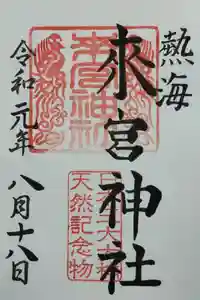 熱海
來宮神社
令和元年
八月十八日
來宮神社
日本三大大楠
天然記念物